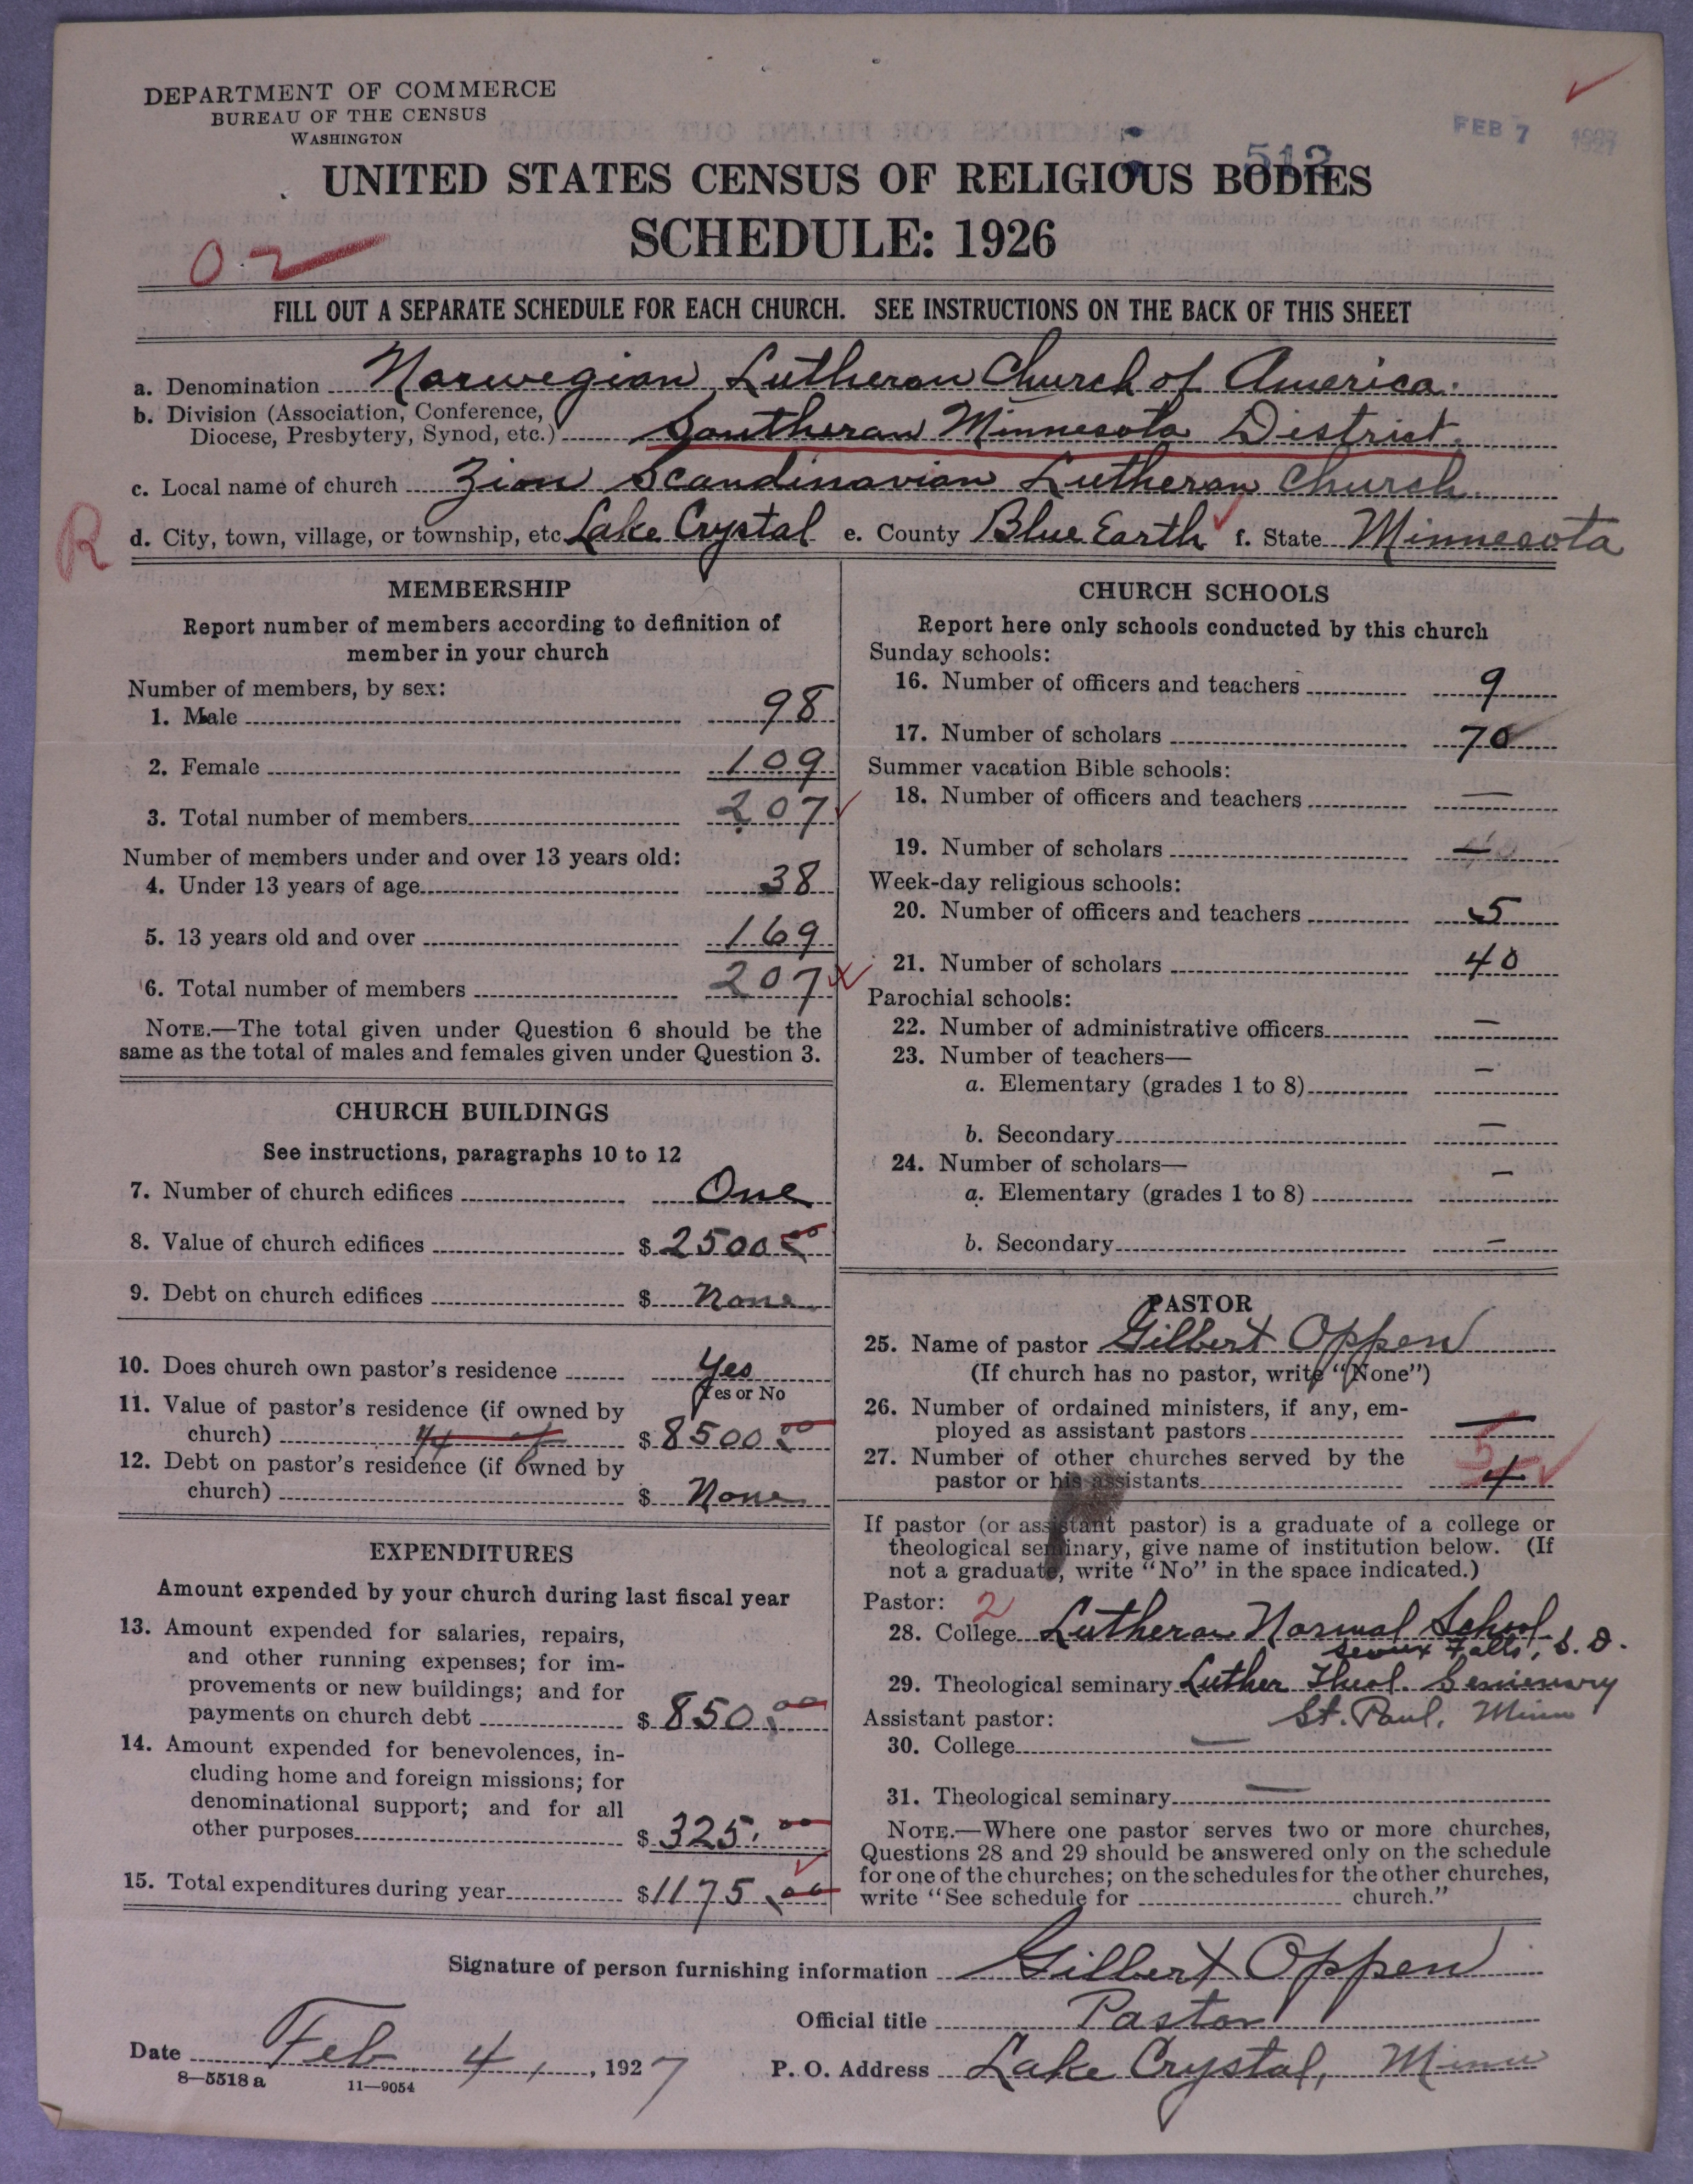 DEPARTMENT OF COMMERCE
BUREAU OF THE CENSUS
WASHINGTON
FEB 7 1927
512
UNITED STATES CENSUS OF RELIGIOUS BODIES
SCHEDULE: 1926
02
FILL OUT A SEPARATE SCHEDULE FOR EACH CHURCH. SEE INSTRUCTIONS ON THE BACK OF THIS SHEET
a. Denomination Norwegian Lutheran Church of America.
b. Division (Association, Conference,
Diocese, Presbytery, Synod, etc.) Southeran Minnesota District.
c. Local name of church Zion Scandinavian Lutheran Church
R
d. City, town, village, or township, etc Lake Crystal e. County Blue Earth f. State Minnesota
MEMBERSHIP
Report number of members according to definition of
member in your church
Number of members, by sex:
1. Male 98
2. Female 109
3. Total number of members 207
Number of members under and over 13 years old:
4. Under 13 years of age 38
5. 13 years old and over 169
6. Total number of members 207
NOTE.—The total given under Question 6 should be the
same as the total of males and females given under Question 3.
CHURCH BUILDINGS
See instructions, paragraphs 10 to 12
7. Number of church edifices One
8. Value of church edifices $ 2500 00
9. Debt on church edifices $ None
10. Does church own pastor's residence Yes
Yes or No
11. Value of pastor's residence (if owned by
church) $ 8500 00
12. Debt on pastor's residence (if owned by
church) $ None
EXPENDITURES
Amount expended by your church during last fiscal year
13. Amount expended for salaries, repairs,
and other running expenses; for im-
provements or new buildings; and for
payments on church debt $ 850.00
14. Amount expended for benevolences, in-
cluding home and foreign missions; for
denominational support; and for all
other purposes $ 325.00
15. Total expenditures during year $ 1175.00
CHURCH SCHOOLS
Report here only schools conducted by this church
Sunday schools:
16. Number of officers and teachers 9
17. Number of scholars 70
Summer vacation Bible schools:
18. Number of officers and teachers —
19. Number of scholars —
Week-day religious schools:
20. Number of officers and teachers 5
21. Number of scholars 40
Parochial schools:
22. Number of administrative officers —
23. Number of teachers—
a. Elementary (grades 1 to 8) —
b. Secondary —
24. Number of scholars—
a. Elementary (grades 1 to 8) —
b. Secondary —
PASTOR
25. Name of pastor Gilbert Oppen
(If church has no pastor, write "None")
26. Number of ordained ministers, if any, em-
ployed as assistant pastors —
27. Number of other churches served by the
pastor or his assistants 5 4
If pastor (or assistant pastor) is a graduate of a college or
theological seminary, give name of institution below. (If
not a graduate, write "No" in the space indicated.)
Pastor: 2
28. College Lutheran Normal School
Sioux Falls, S. D.
29. Theological seminary Luther Theol. Semienary
St. Paul, Minn
Assistant pastor:
30. College —
31. Theological seminary —
NOTE.—Where one pastor serves two or more churches,
Questions 28 and 29 should be answered only on the schedule
for one of the churches; on the schedules for the other churches,
write "See schedule for church."
Signature of person furnishing information Gilbert Oppen
Official title Pastor
Date Feb. 4, 1927 P. O. Address Lake Crystal, Minn
8—5518 a 11—9054